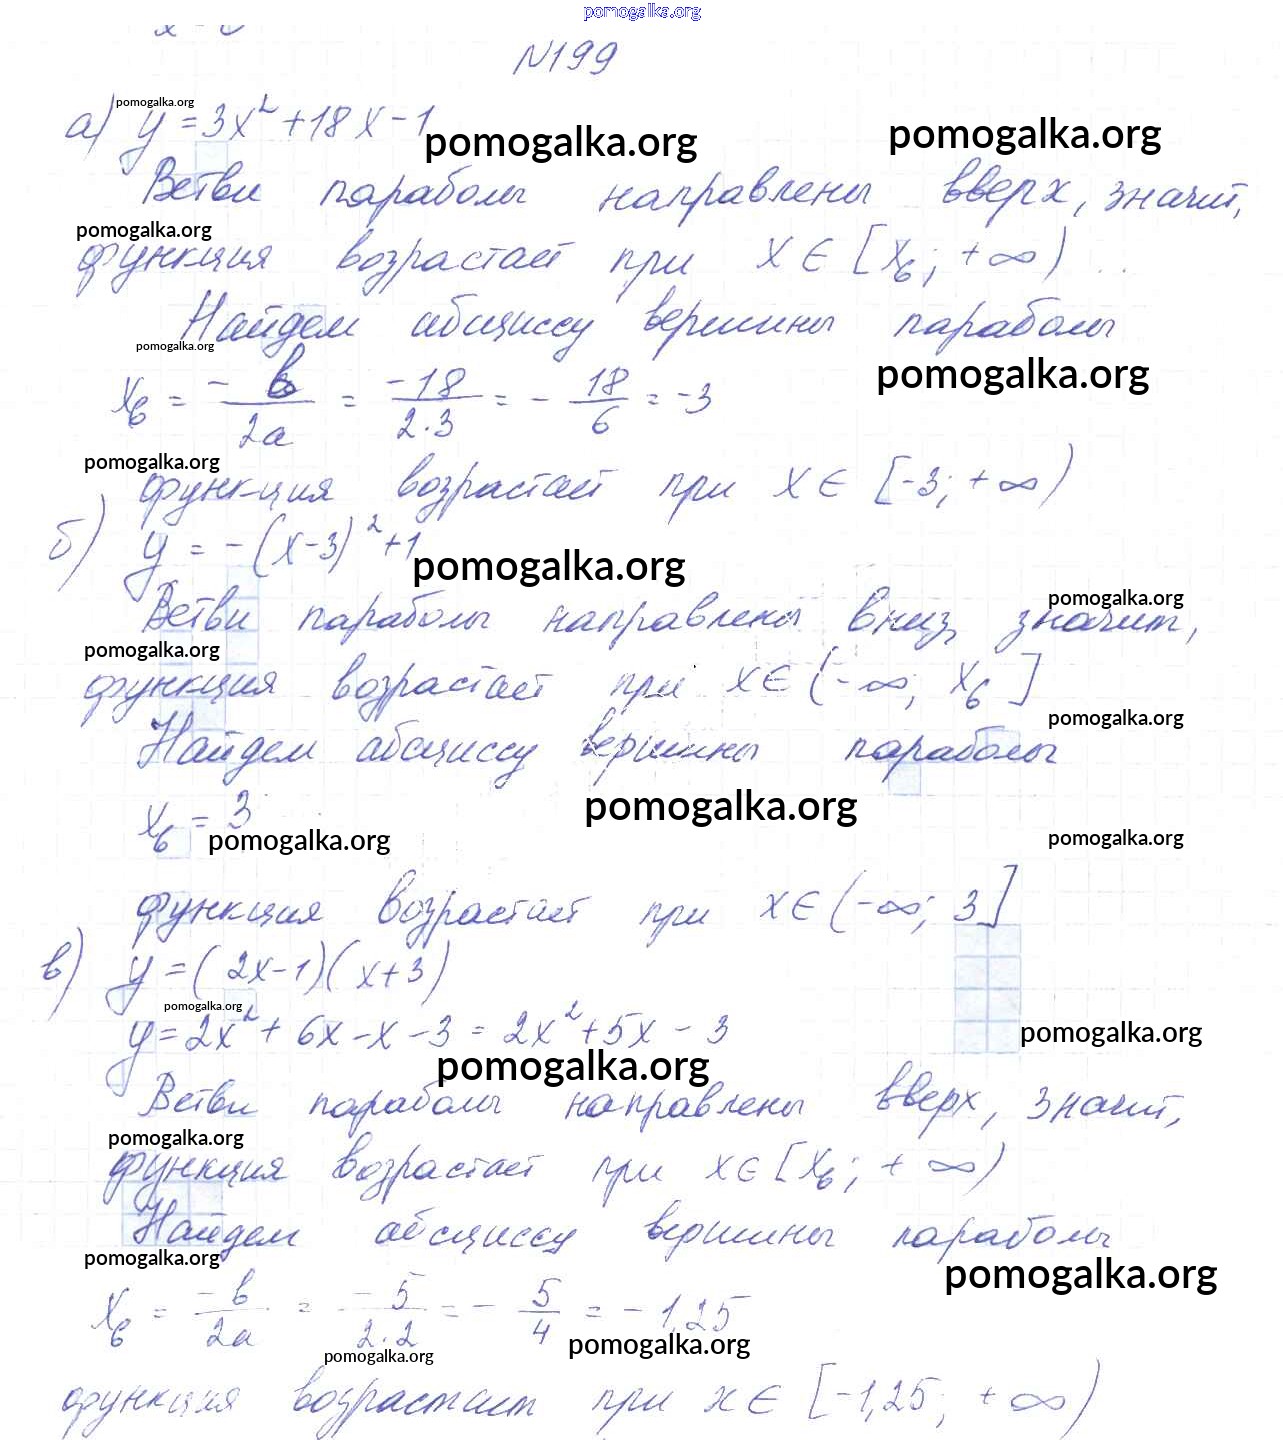 pomogalka.org
N199
pomogalka.org
а) y = 3x² + 18x - 1
pomogalka.org
pomogalka.org
Ветви параболы направлены вверх, значит,
pomogalka.org
функция возрастает при x ∈ [xв; +∞)
Найдем абсциссу вершины параболы
pomogalka.org
pomogalka.org
xв = -b/2a = -18/2·3 = -18/6 = -3
pomogalka.org
функция возрастает при x ∈ [-3; +∞)
б) y = -(x-3)² + 1
pomogalka.org
pomogalka.org
Ветви параболы направлены вниз, значит,
pomogalka.org
функция возрастает при x ∈ (-∞; xв]
pomogalka.org
Найдем абсциссу вершины параболы
pomogalka.org
xв = 3
pomogalka.org
pomogalka.org
функция возрастает при x ∈ (-∞; 3]
в) y = (2x-1)(x+3)
pomogalka.org
y = 2x² + 6x - x - 3 = 2x² + 5x - 3
pomogalka.org
pomogalka.org
Ветви параболы направлены вверх, значит,
pomogalka.org
функция возрастает при x ∈ [xв; +∞)
Найдем абсциссу вершины параболы
pomogalka.org
pomogalka.org
xв = -b/2a = -5/2·2 = -5/4 = -1,25
pomogalka.org
pomogalka.org
функция возрастает при x ∈ [-1,25; +∞)